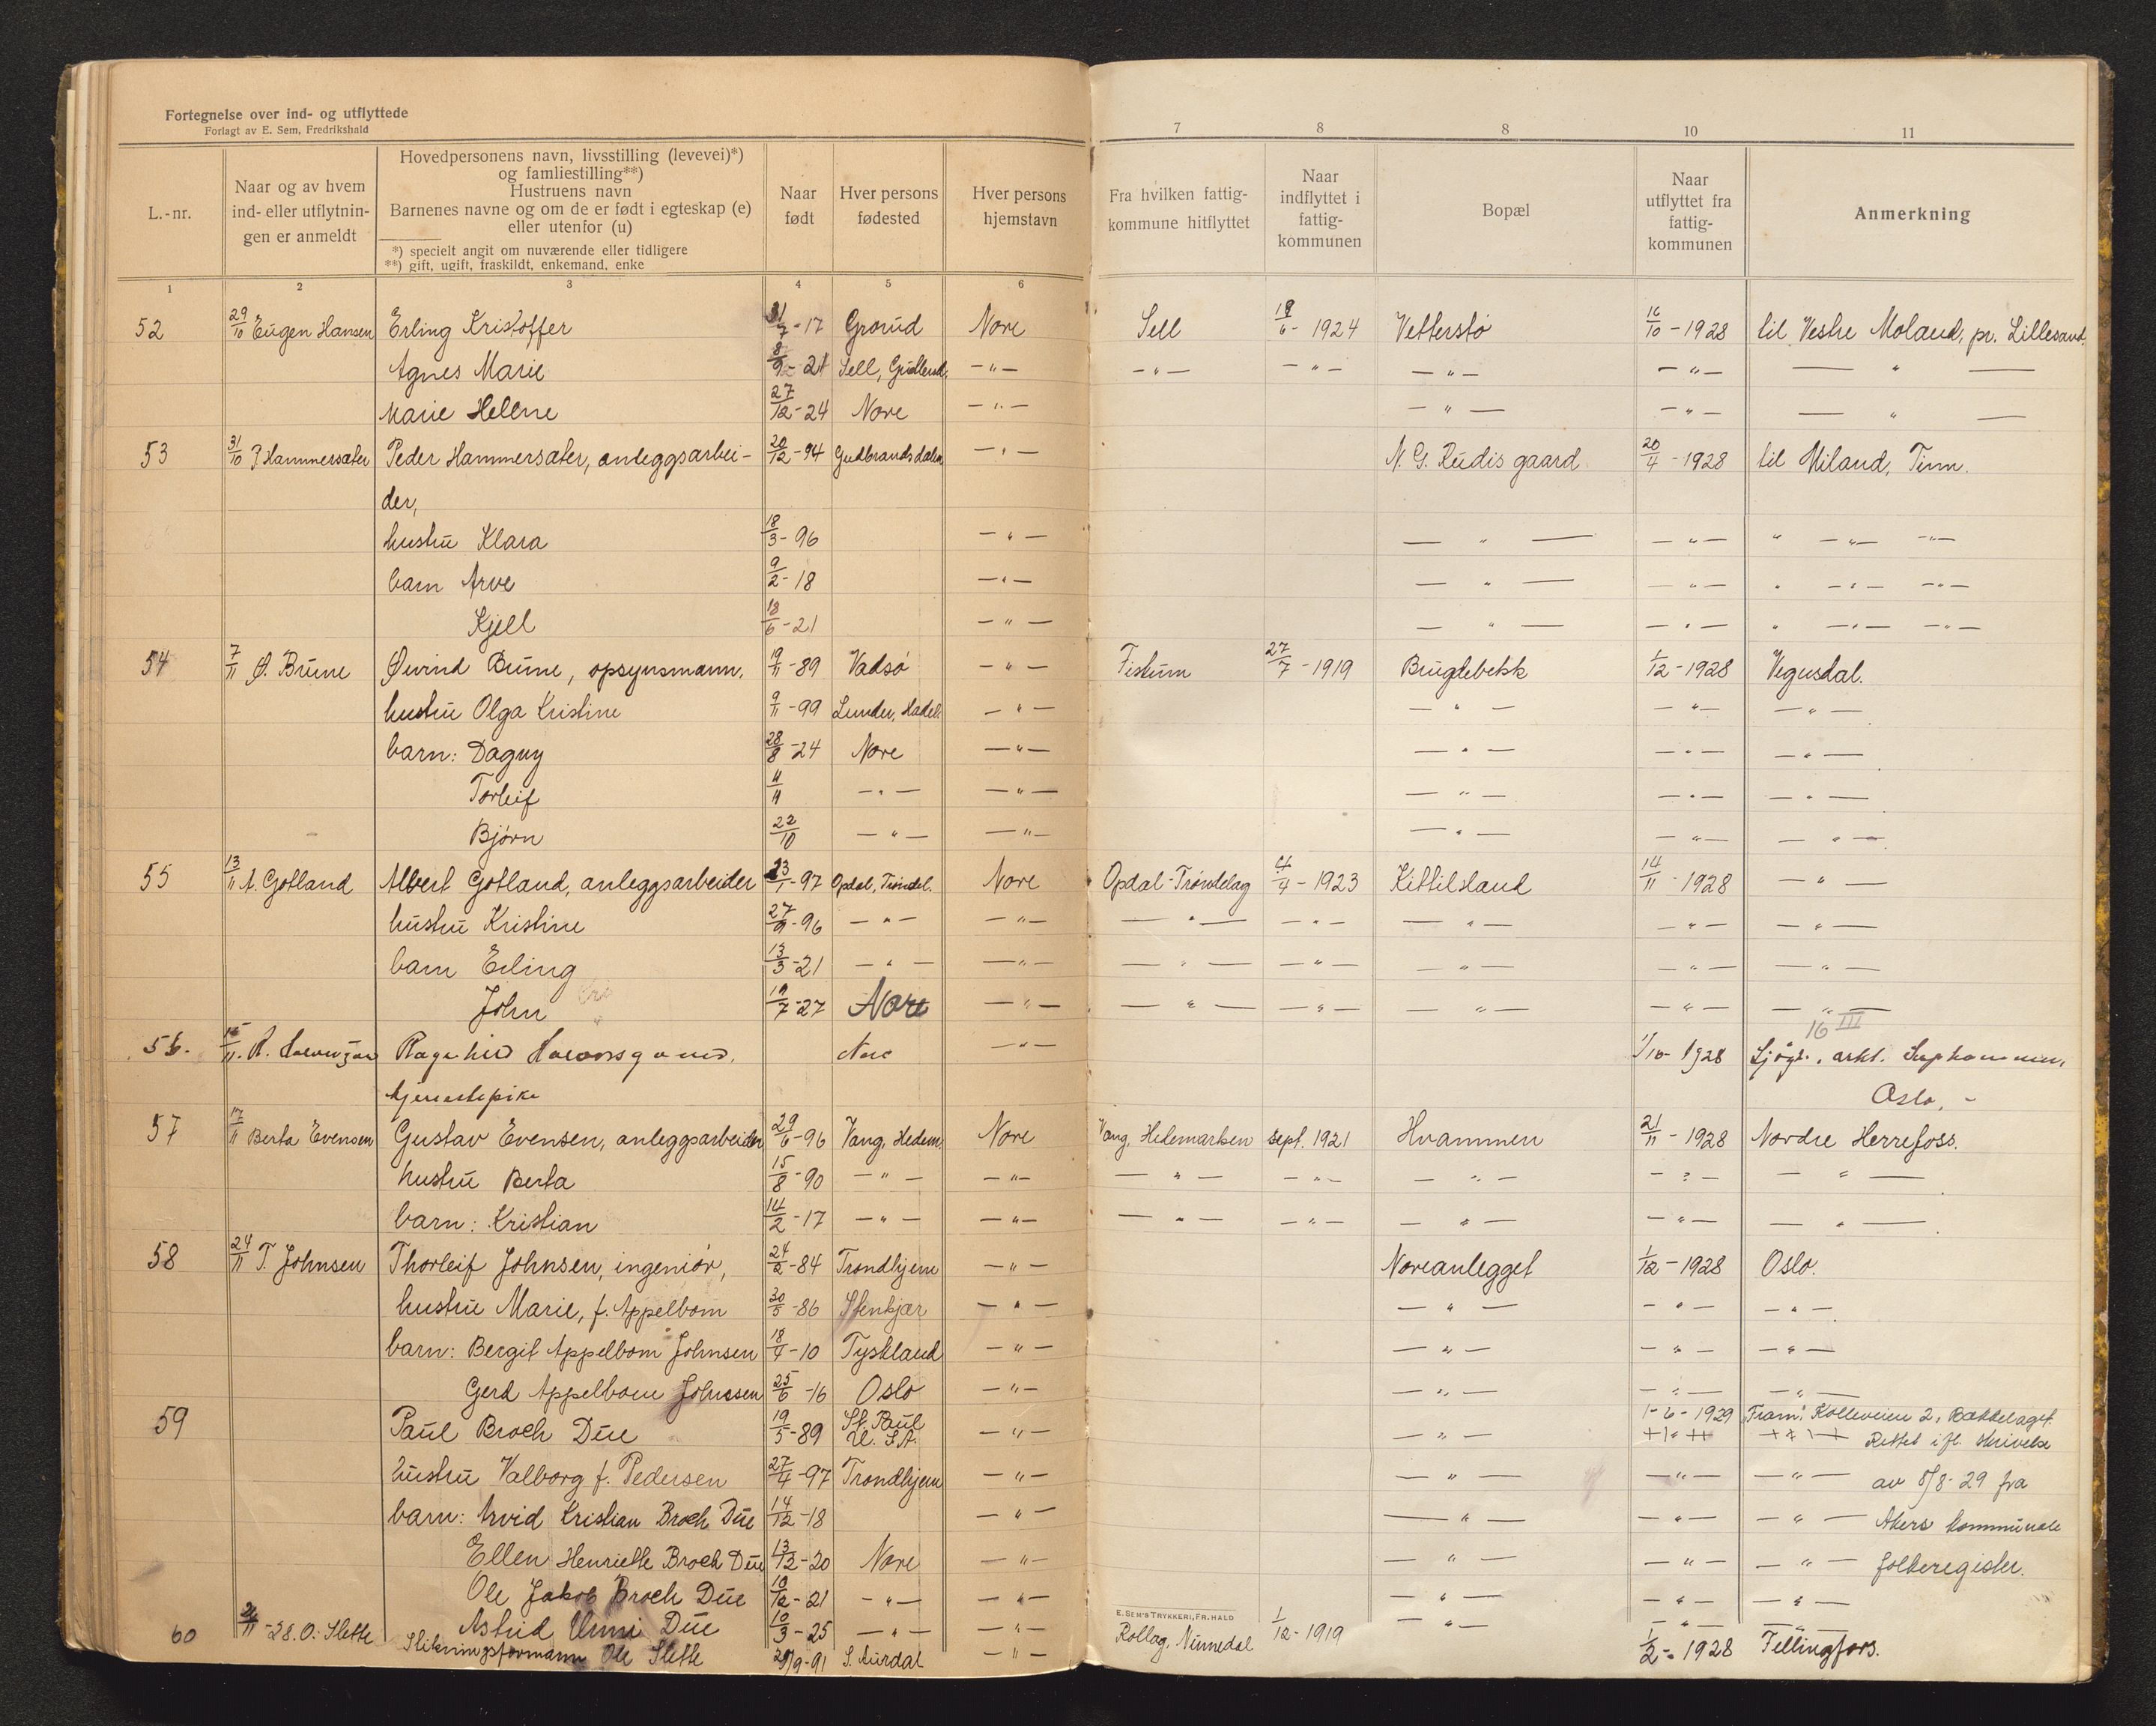 Fortegnelse over ind- og utflyttede
Forlagt av E. Sem, Fredrikshald
L.-nr. Naar og av hvem ind- eller utflytnin- gen er anmeldt Hovedpersonens navn, livsstilling (levevei)*) og famliestilling**) Hustruens navn Barnenes navne og om de er født i egteskap (e) eller utenfor (u) *) specielt angit om nuværende eller tidligere **) gift, ugift, fraskildt, enkemand, enke Naar født Hver persons fødested Hver persons hjemstavn Fra hvilken fattig- kommune hitflyttet Naar indflyttet i fattig- kommunen Bopæl Naar utflyttet fra fattig- kommunen Anmerkning
1 2 3 4 5 6 7 8 8 10 11
52 29/10 Eugen Hansen Erling Kristoffer 31/7-17 Grorud Nore Sell 19/6-1924 Vetterstø 16/10-1928 til Vestre Moland, pr. Lillesand.
Agnes Marie 8/9-21 Sell, Gudbrnd. -"- -"- -"- -"- -"- - " -
Marie Helene 27/12-24 Nore -"- -"- -"- - " -
53 31/10 P. Hammersæter Peder Hammersæter, anleggsarbei- 20/12-94 Gudbrandsdalen -"- N. G. Rudis gaard 20/4-1928 til Miland, Tinn.
der,
hustru Klara 18/3-96 -"- - " - -"- " -"- -"-
barn Arve 9/2-18 -"- - " - -"- " -"- -"-
Kjell 18/6-21 -"- - " - -"- " -"- -"-
54 7/11 Ø. Brune Øivind Brune, opsynsmann. 19/11-89 Vadsø -"- Fiskum 27/7-1919 Brugdebekk 1/12-1928 Vegusdal.
hustru Olga Kristine 9/11-99 Lunder, Hadel. -"- -"- -"- -"-
barn: Dagny 28/8-24 Nore -"- -"- -"- -"-
Torleif 4/11 -"- -"- -"- -"- -"-
Bjørn 22/10 -"- -"- -"- -"- -"-
55 13/11 A. Gotland Albert Gotland, anleggsarbeider 23/1-97 Opdal, Trøndel. Nore Opdal-Trøndelag 4/4-1923 Kittilsland 14/11-1928 -"-
hustru Kristine 27/9-96 -"- -"- -"- -"- -"- -"- -"-
barn Erling 13/3-21 -"- -"- -"- -"- -"- -"- -"-
John 19/7-27 Nore -"- -"- -"- -"- -"- -"-
16 III
56. 15/11. R. Ragnhild Nore -"- 1/10-1928
tjenestepike Oslo.-
57 17/11 Berta Evensen Gustav Evensen, anleggsarbeider 29/6-96 Vang, Hedem. Nore Vang, Hedemarken sept. 1921 Hvammen 21/11-1928 Nordre Herrefoss.
hustru Berta 15/8-90 -"- -"- -"- -"- -"- -"- -"-
barn: Kristian 14/2-17 -"- -"- -"- -"- -"- -"- -"-
58 24/11 T. Johnsen Thorleif Johnsen, ingeniør, 24/2-84 Trondhjem -"- Noreanlegget 1/12-1928 Oslo.
hustru Marie, f. Appelbom 30/5-86 Stenkjær -"- -"- -"- -"-
barn: Bergit Appelbom Johnsen 18/4-10 Tyskland -"- -"- -"- -"-
Gerd Appelbom Johnsen 25/6-16 Oslo -"- -"- -"- -"-
59 Paul Broch Due 19/5-89 St. Paul U. S. A. -"- -"- 1-6-1929 Fram. Kolleveien 2, Bækkelaget.
Rettet ifl. skrivelse
hustru Valborg f. Pedersen 27/4-97 Trondhjem -"- -"- -"- -"- av 8/8-29 fra
barn: Arvid Kristian Broch Due 14/12-18 -"- -"- -"- -"- Akers kommunale
Ellen Henriette Broch Due 13/12-20 Nore -"- -"- -"- -"- folkeregister.
Ole Jakob Broch Due 10/12-21 -"- -"- -"- -"- -"-
E. SEM'S TRYKKERI, FR.HALD
Astrid Unni Due 10/3-25 -"- -"- -"- -"- -"-
60 26/11-28. O. Slette Stikningsformann Ole Slette 29/9-91 S. Aurdal -"- Rollag, Numedal 1/12-1919 1/2-1928 Tellingfors.